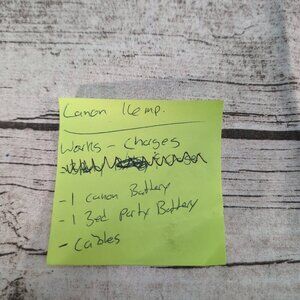 Canon 16mp.
Works - Charges
- 1 Canon Battery
- 1 3ed Party Battery
- Cables